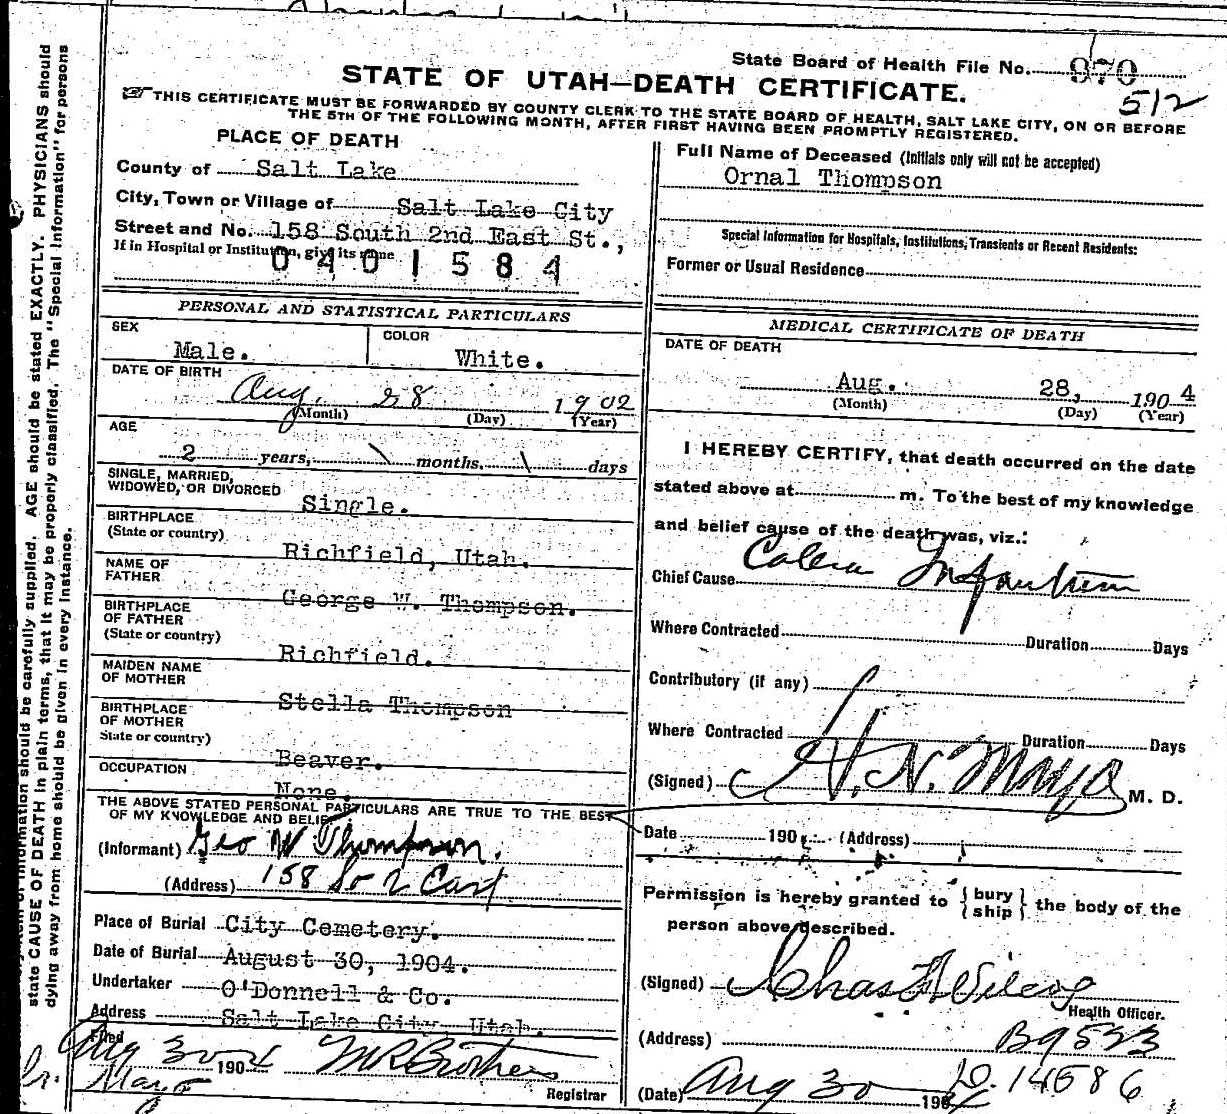 State Board of Health File No. 970
512
STATE OF UTAH—DEATH CERTIFICATE.
THIS CERTIFICATE MUST BE FORWARDED BY COUNTY CLERK TO THE STATE BOARD OF HEALTH, SALT LAKE CITY, ON OR BEFORE
THE 5TH OF THE FOLLOWING MONTH, AFTER FIRST HAVING BEEN PROMPTLY REGISTERED.
PLACE OF DEATH
County of Salt Lake
City, Town or Village of Salt Lake City
Street and No. 158 South 2nd East St.,
If in Hospital or Institution, give its name
0401584
PERSONAL AND STATISTICAL PARTICULARS
SEX Male.
COLOR White.
DATE OF BIRTH Aug. 28 1902
(Month) (Day) (Year)
AGE
2 years, \ months. \ days
SINGLE, MARRIED,
WIDOWED, OR DIVORCED Single.
BIRTHPLACE
(State or country) Richfield, Utah.
NAME OF
FATHER George W. Thompson.
BIRTHPLACE
OF FATHER
(State or country) Richfield.
MAIDEN NAME
OF MOTHER Stella Thompson
BIRTHPLACE
OF MOTHER
State or country) Beaver.
OCCUPATION None.
THE ABOVE STATED PERSONAL PARTICULARS ARE TRUE TO THE BEST
OF MY KNOWLEDGE AND BELIEF
(Informant) Geo W Thompson.
(Address) 158 So 2 East
Place of Burial City Cemetery.
Date of Burial August 30, 1904.
Undertaker O'Donnell & Co.
Address Salt Lake City, Utah.
Filed
Aug 30 1904 Registrar
Dr. Mayo
Full Name of Deceased (Initials only will not be accepted)
Ornal Thompson
Special Information for Hospitals, Institutions, Transients or Recent Residents:
Former or Usual Residence
MEDICAL CERTIFICATE OF DEATH
DATE OF DEATH
Aug. 28, 1904
(Month) (Day) (Year)
I HEREBY CERTIFY, that death occurred on the date
stated above at m. To the best of my knowledge
and belief cause of the death was, viz.:
Chief Cause Colera Infantum
Where Contracted Duration Days
Contributory (if any)
Where Contracted Duration Days
(Signed) H. N. Mayo M. D.
Date 190 (Address)
Permission is hereby granted to { bury / ship } the body of the
person above described.
(Signed) Chas F Wilcox
Health Officer.
(Address) B9533
(Date) Aug 30 190 D. 14586
state CAUSE OF DEATH in plain terms, that it may be properly classified. The "Special Information" for persons
dying away from home should be given in every instance.
information should be carefully supplied. AGE should be stated EXACTLY. PHYSICIANS should